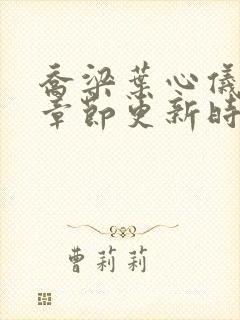 乔梁葉心儀
章節更新時
曹莉莉